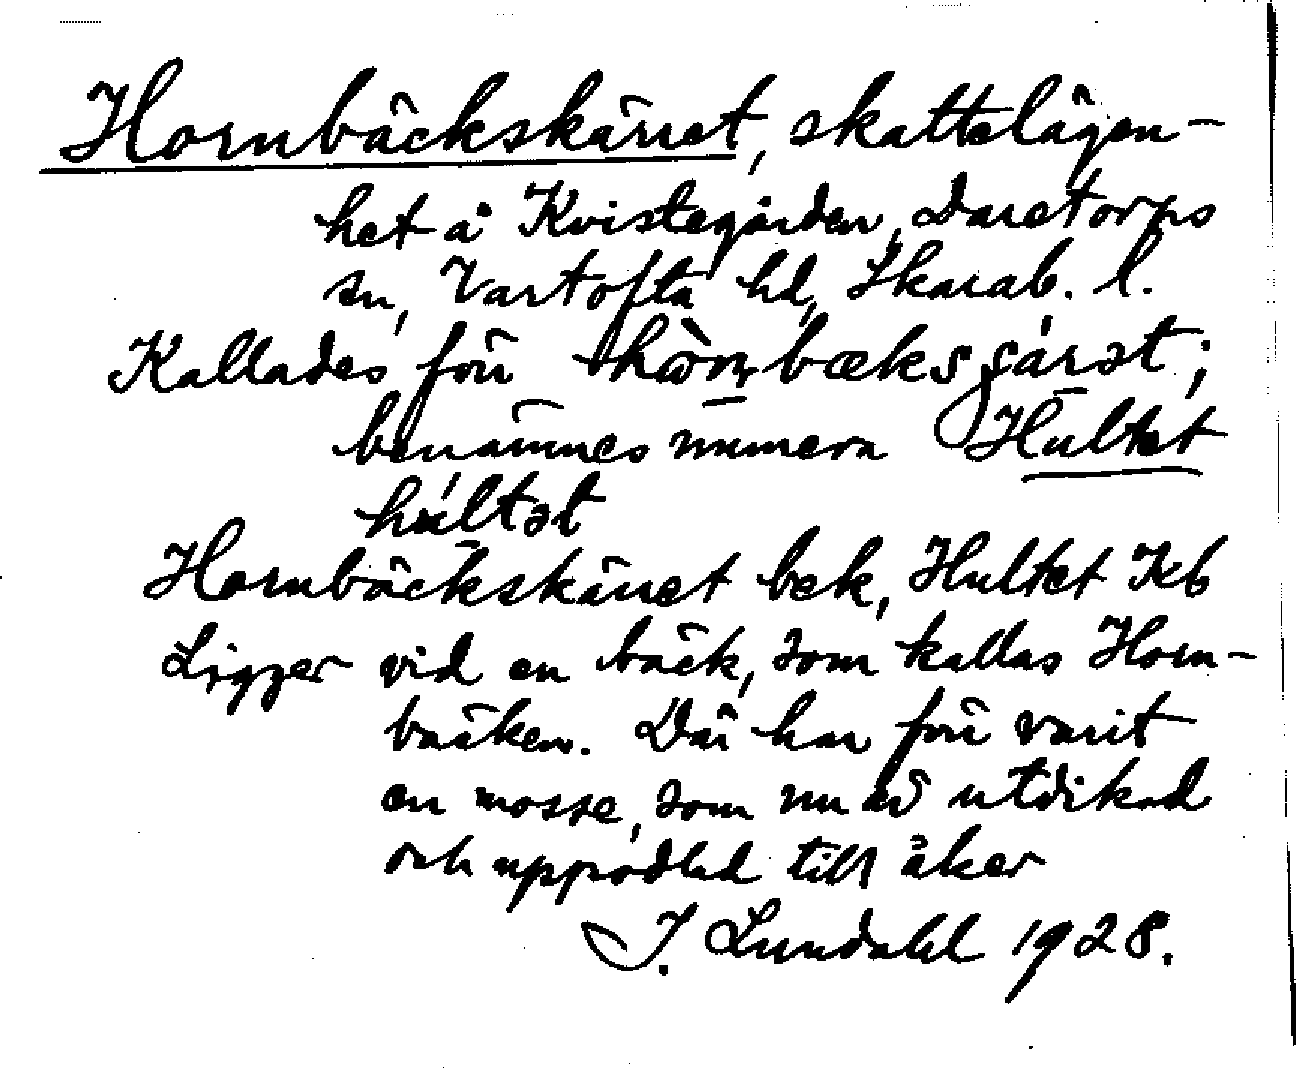 Hornbäckskärret, skattelägen-
het å Kvistegården, Daretorps
sn, Vartofta hd, Skarab. l.
Kallades förr
benämnes numera Hultet
hultət
Hornbäckskärret bek, Hultet Kb
Ligger vid en bäck, som kallas Horn-
bäcken. Där har förr varit
en mosse, som nu är utdikad
och uppodlad till åker
J. Lundahl 1928.